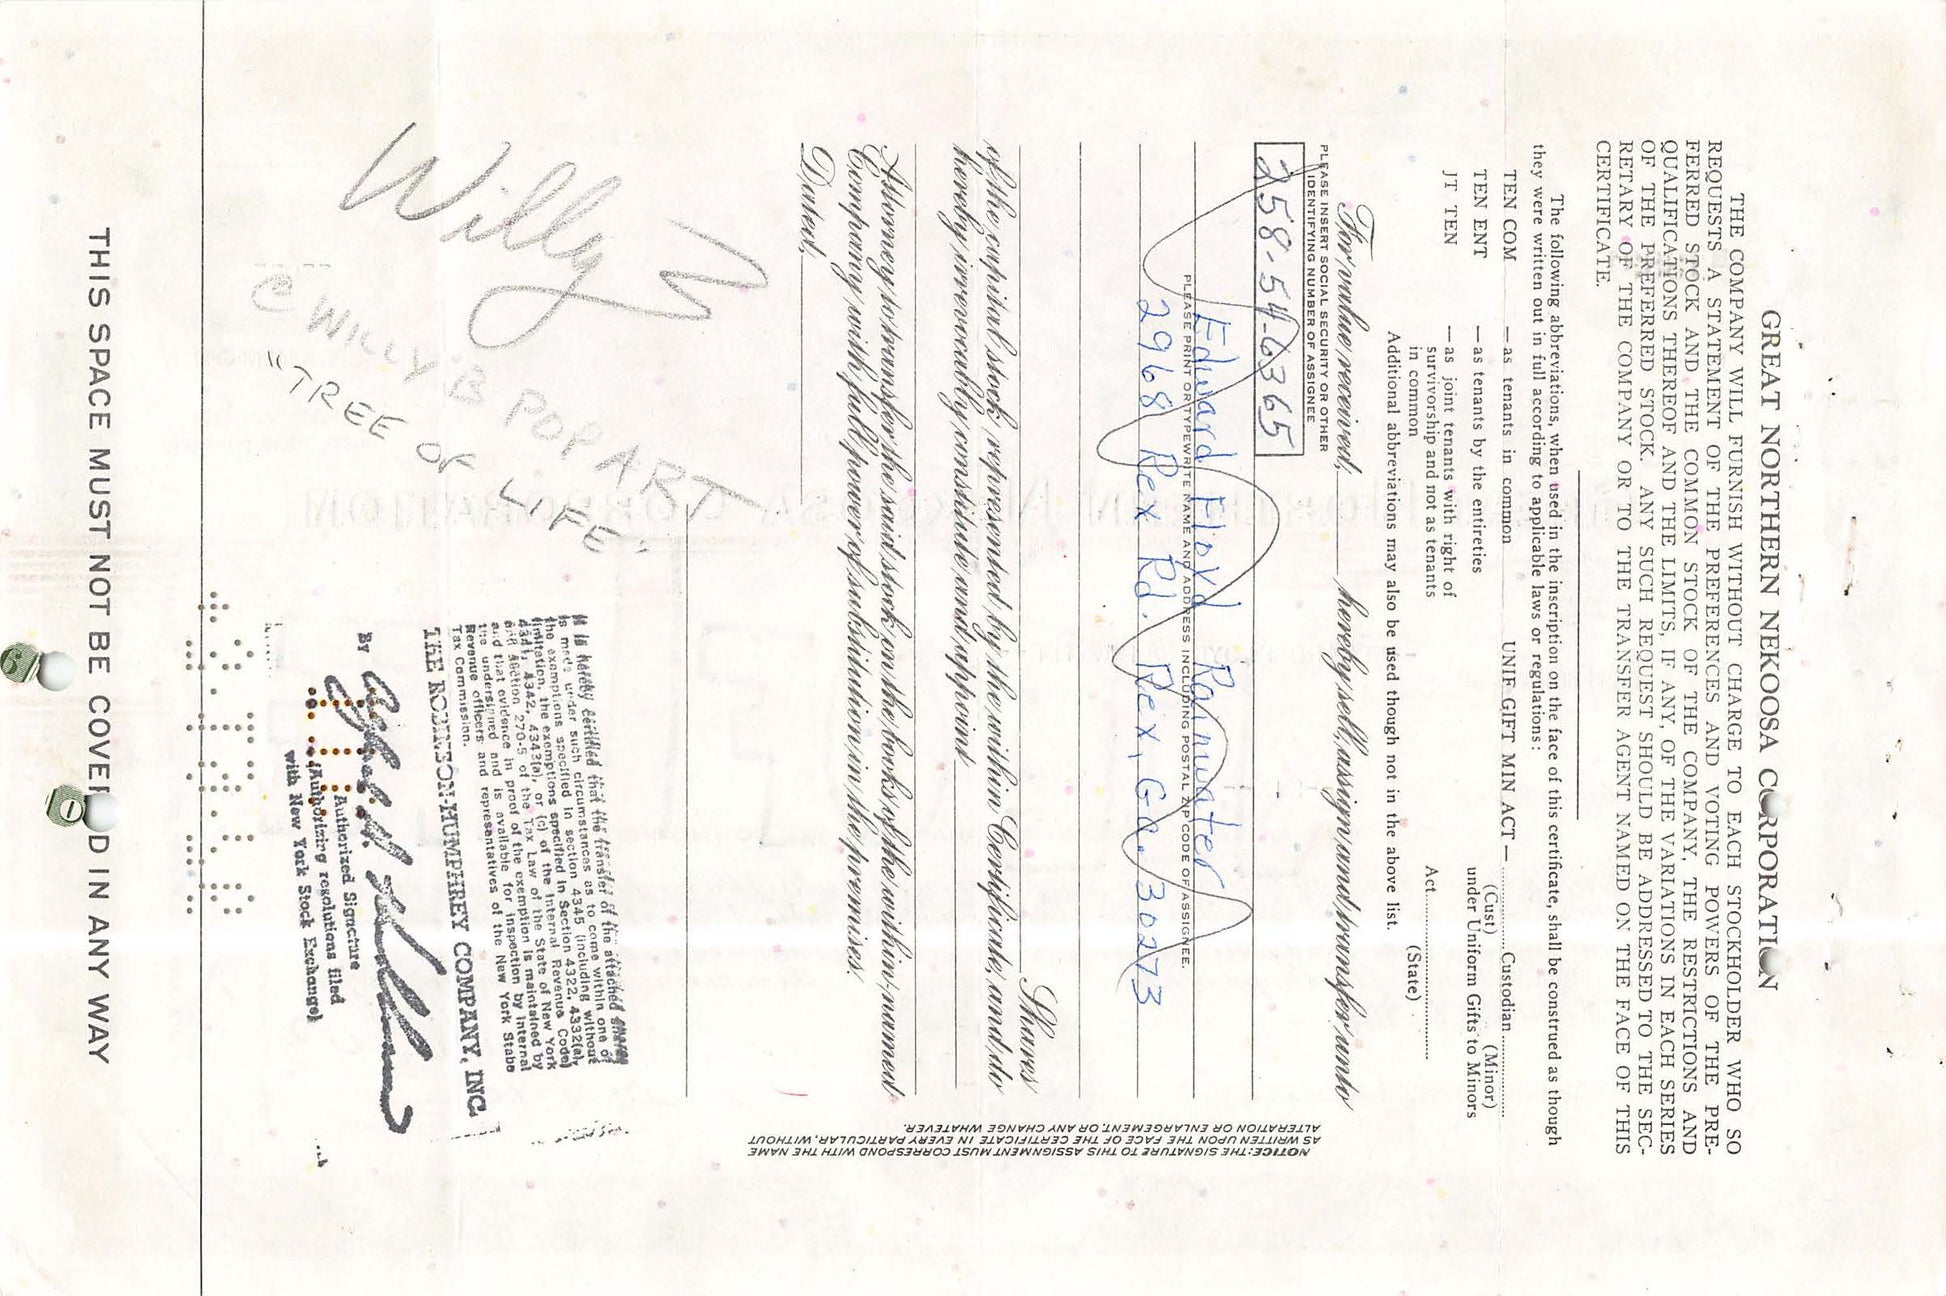 GREAT NORTHERN NEKOOSA CORPORATION
THE COMPANY WILL FURNISH WITHOUT CHARGE TO EACH STOCKHOLDER WHO SO
REQUESTS A STATEMENT OF THE PREFERENCES AND VOTING POWERS OF THE PRE-
FERRED STOCK AND THE COMMON STOCK OF THE COMPANY, THE RESTRICTIONS AND
QUALIFICATIONS THEREOF AND THE LIMITS, IF ANY, OF THE VARIATIONS IN EACH SERIES
OF THE PREFERRED STOCK. ANY SUCH REQUEST SHOULD BE ADDRESSED TO THE SEC-
RETARY OF THE COMPANY OR TO THE TRANSFER AGENT NAMED ON THE FACE OF THIS
CERTIFICATE.
The following abbreviations, when used in the inscription on the face of this certificate, shall be construed as though
they were written out in full according to applicable laws or regulations:
TEN COM — as tenants in common UNIF GIFT MIN ACT — ..........Custodian..........
(Cust) (Minor)
TEN ENT — as tenants by the entireties under Uniform Gifts to Minors
JT TEN — as joint tenants with right of
survivorship and not as tenants Act..........
in common (State)
Additional abbreviations may also be used though not in the above list.
For value received, hereby sell, assign and transfer unto
PLEASE INSERT SOCIAL SECURITY OR OTHER
IDENTIFYING NUMBER OF ASSIGNEE
258-54-6365
Edward Floyd Rainwater
PLEASE PRINT OR TYPEWRITE NAME AND ADDRESS INCLUDING POSTAL ZIP CODE OF ASSIGNEE.
2968 Rex Rd. Rex, Ga. 30273
Shares
of the capital stock represented by the within Certificate, and do
hereby irrevocably constitute and appoint
Attorney to transfer the said stock on the books of the within-named
Company with full power of substitution in the premises.
Dated,
NOTICE: THE SIGNATURE TO THIS ASSIGNMENT MUST CORRESPOND WITH THE NAME
AS WRITTEN UPON THE FACE OF THE CERTIFICATE IN EVERY PARTICULAR, WITHOUT
ALTERATION OR ENLARGEMENT, OR ANY CHANGE WHATEVER.
Willy
© WILLY B POP ART
"TREE OF LIFE"
It is hereby certified that the transfer of the attached shares
is made under such circumstances as to come within one of
the exemptions specified in section 4345 (including without
limitation, the exemptions specified in Section 4322, 4332(a),
4341, 4342, 4343(a), or (c) of the Internal Revenue Code)
and section 270-5 of the Tax Law of the State of New York
and that evidence in proof of the exemption is maintained by
the undersigned and is available for inspection by Internal
Revenue officers and representatives of the New York State
Tax Commission.
THE ROBINSON-HUMPHREY COMPANY, INC.
By
Authorized Signature
(Authorizing resolutions filed
with New York Stock Exchange)
THIS SPACE MUST NOT BE COVERED IN ANY WAY